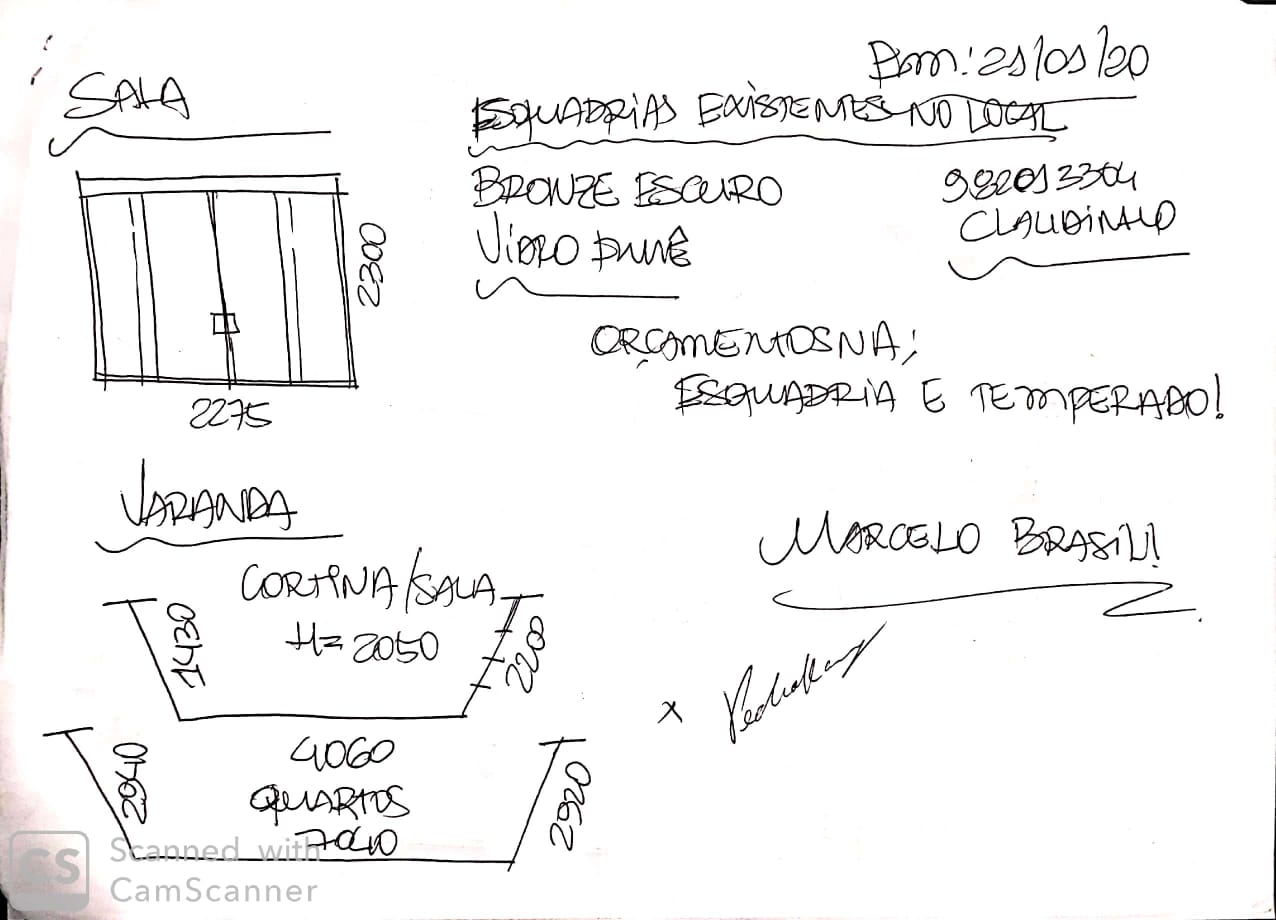 SALA
Bom: 21/01/20
ESQUADRIAS EXISTENTES NO LOCAL
BRONZE ESCURO
982013304
CLAUDINALD
VIDRO FUMÊ
2300
2275
ORÇAMENTOS NA;
ESQUADRIA E TEMPERADO!
VARANDA
MARCELO BRASIL!
CORTINA/SALA
H= 2050
1430
2200
X
4060
QUARTOS
7040
2940
2920
CS
Scanned with
CamScanner